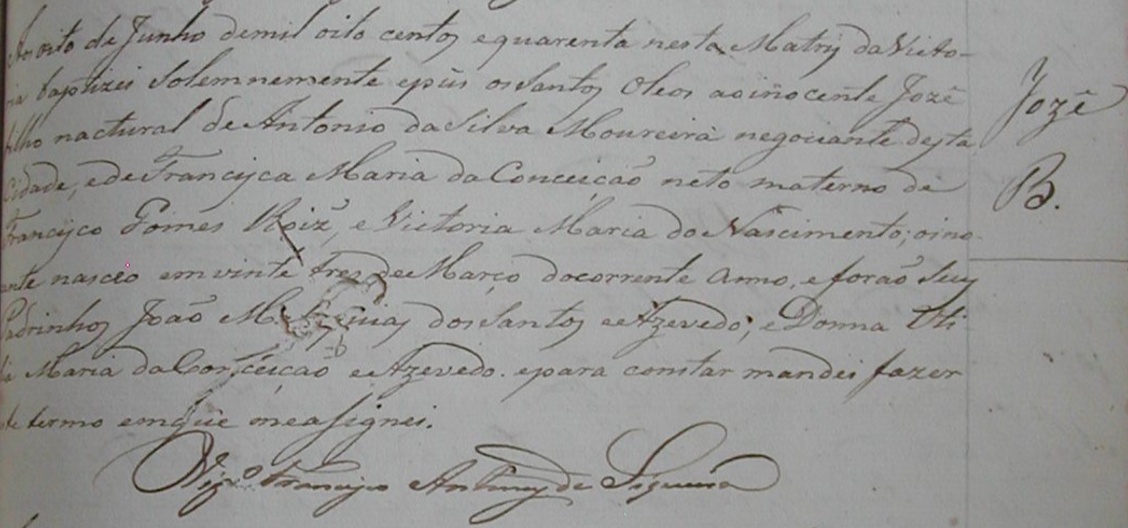 Aos oito de Junho demil oito centos equarenta nesta Matriz daVicto-
ria baptizei Solemnemente epús osSantos Oleos aoiñocente Jozé
filho nactural deAntonio daSilva Moureira negociante desta
Cidade, edeFrancisca Maria daConceicaõ neto materno de
Francisco Gomes Roiz, eVictoria Maria doNascimento; oino-
cente nasceo emvinte trez deMarço docorrente anno, eforaõ Seus
Padrinhos Joaõ dosSantos eAzevedo; eDonna
Maria daConceiçaõ eAzevedo. epara constar mandei fazer
este termo emque meaSignei.
Vigº Francisco Antunes de Siqueira
Jozé
B.